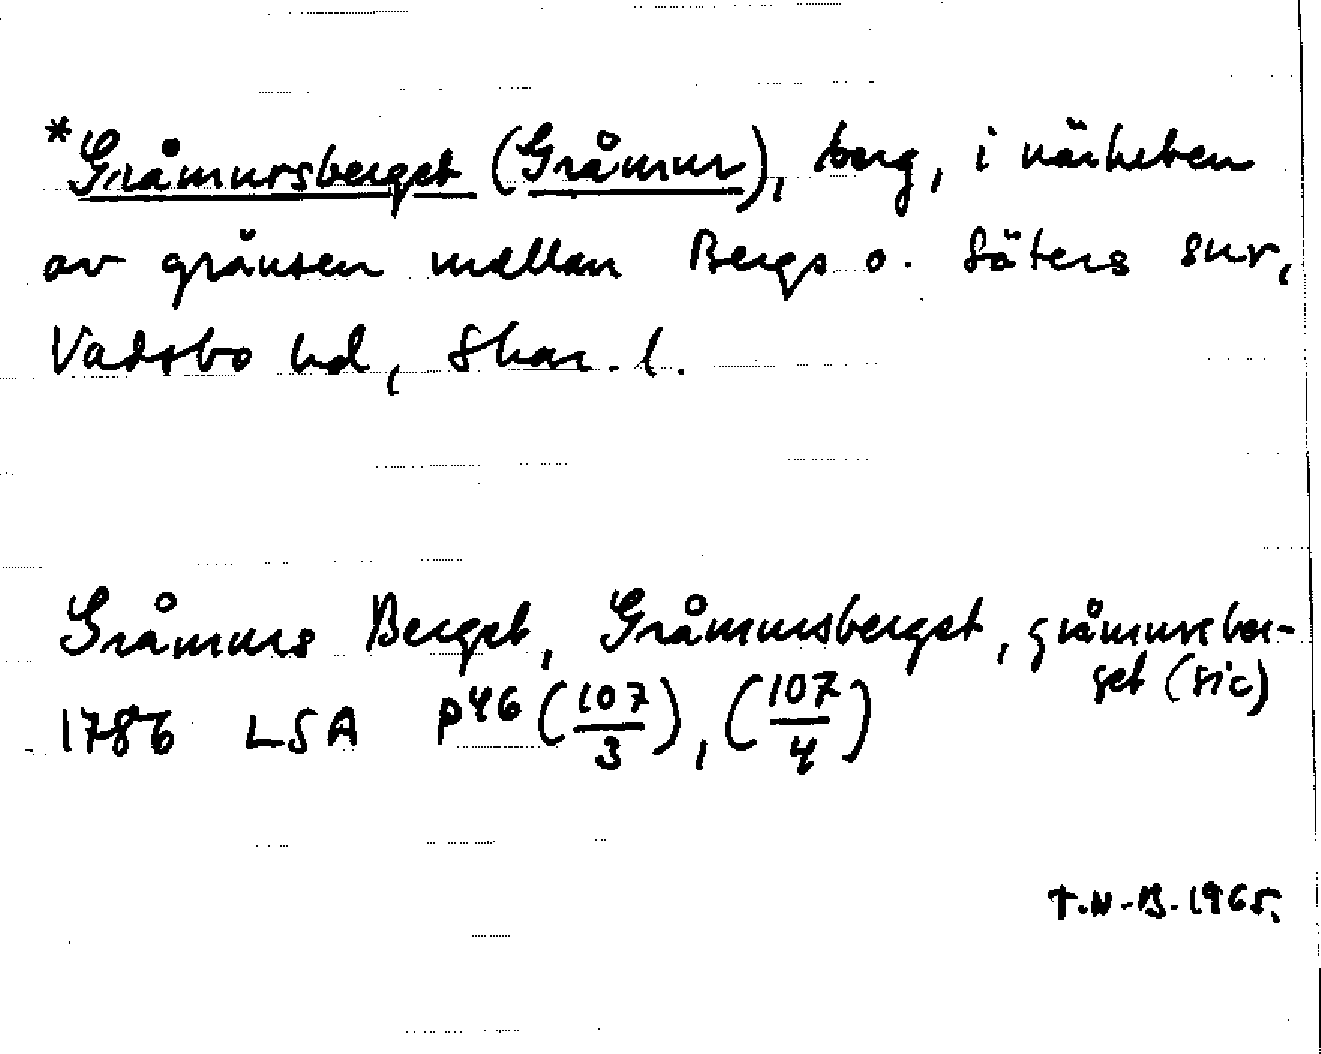 *Gråmursberget (Gråmur), berg, i närheten
av gränsen mellan Bergs o. Säters snr,
Vadsbo hd, Skar. l.
Gråmurs Berget, Gråmursberget, gråmursber-
get (sic)
1786 LSA P46 (107/3), (107/4)
T.N-B. 1965.